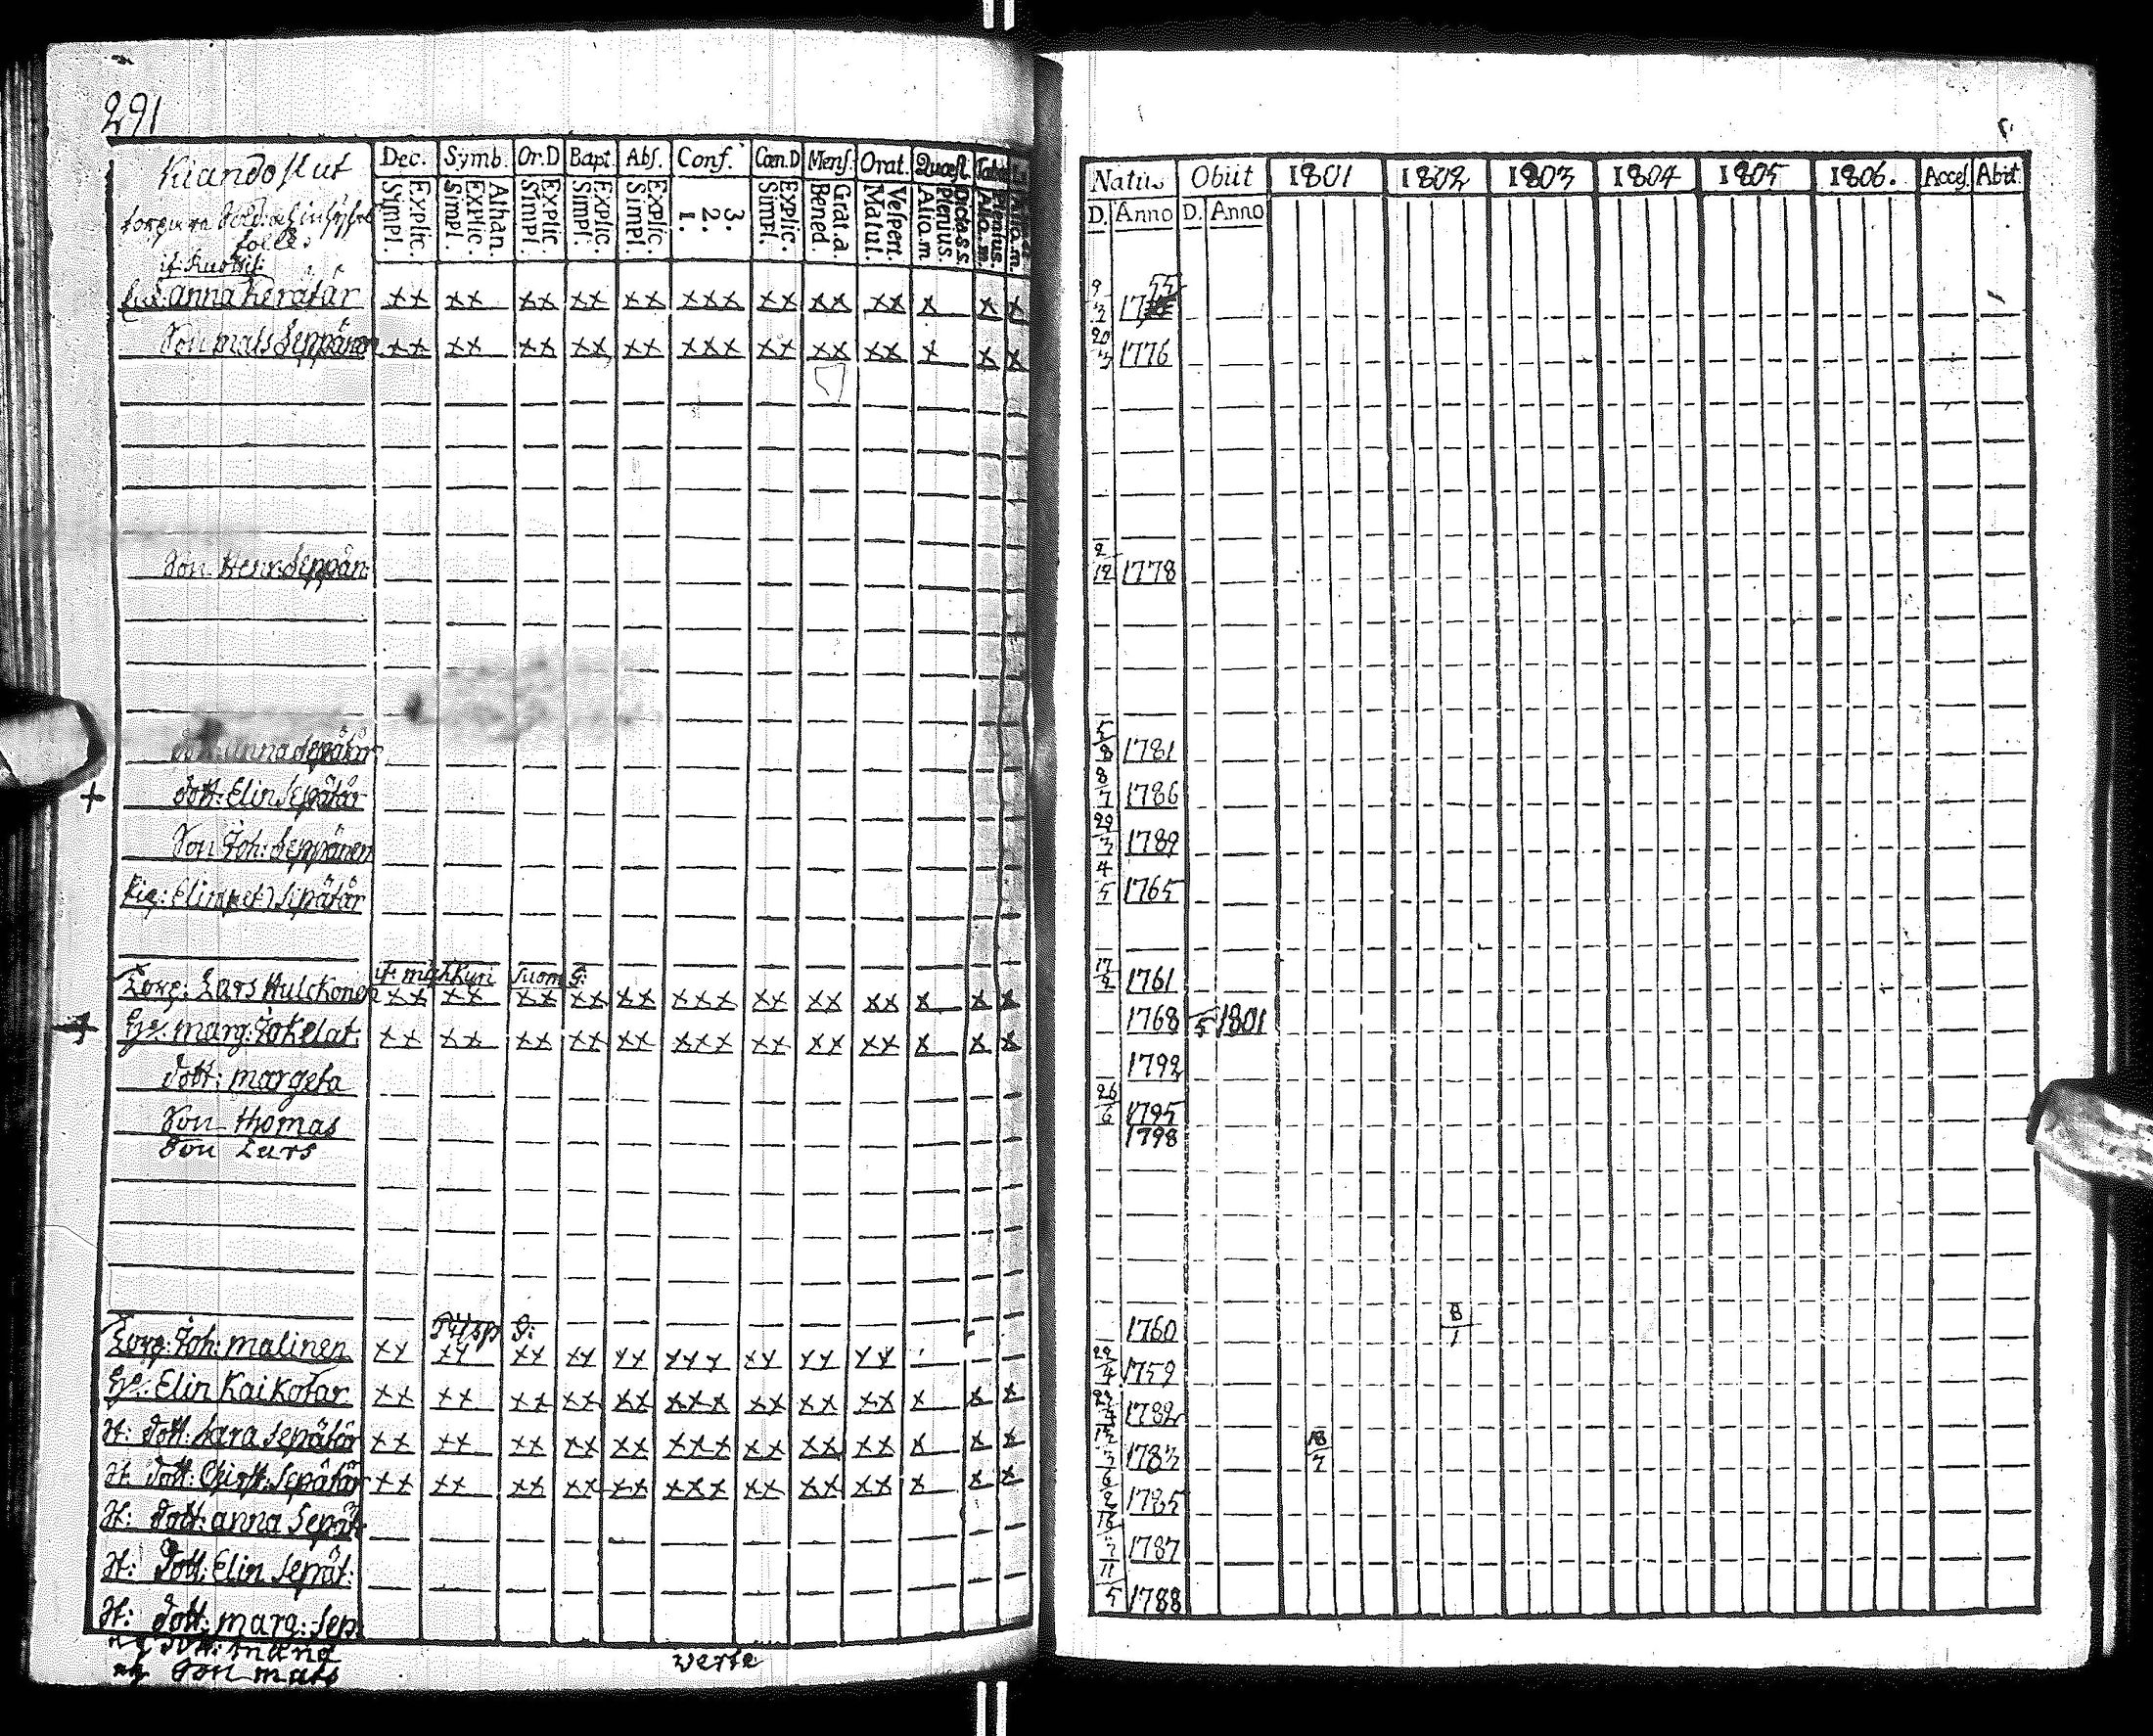 291
Kiando slut
Dec. Symb. Or.D Bapt. Abs. Conf. Cœn.D Mens. Orat. Quæst. Tabul
Explic. Simpl. Athan. Explic. Simpl. Explic. Simpl. Explic. Simpl. Explic. Simpl. 3. 2. 1. Explic. Simpl. Grat.a. Bened. Vespert. Matut. Dicta s.s. Plenius. Aliq.m Plenius. Aliq.m Aliq.m.
Anna Kerätär xx xx xx xx xx xxx xx xx xx x x x
Son mats Seppänen xx xx xx xx xx xxx xx xx xx x x x
Son Henr: Seppän:
anna Sepätär
+ dott: Elin Sepätär
Son Joh: Seppänen
Sepätär
Lars Hulckonen xx xx xx xx xx xxx xx xx xx x x x
marg: Tokelat. xx xx xx xx xx xxx xx xx xx x x x
dott: margeta
Son Thomas
Son Lars
Joh: malinen xx xx xx xx xx xxx xx xx xx
Elin Kaikotar xx xx xx xx xx xxx xx xx xx x x x
H: dott: Sara Sepätär xx xx xx xx xx xxx xx xx xx x x x
H: dott: Christ: Sepätär xx xx xx xx xx xxx xx xx xx x x x
H: dott: anna Sepät:
H: Dott: Elin Sepät:
H: dott: marg: Sep
Son mats
verte
Natus Obiit 1801 1802 1803 1804 1805 1806. Acces. Abiit
D. Anno D. Anno
9/3 1755
20/3 1776
2/12 1778
5/8 1781
8/7 1786
29/3 1789
4/5 1765
17/2 1761
1768 1801
1792
26/6 1795
1798
1760 8/1
22/4 1759
1782
1783 18/7
6/2 1785
1787
11/5 1788